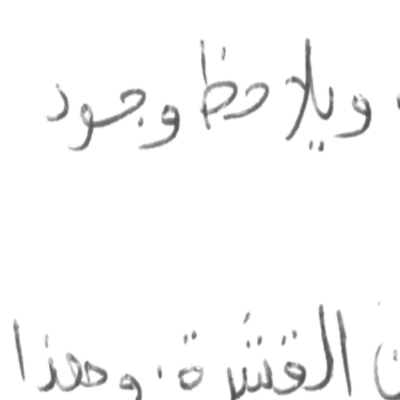 ويلاحظ وجود
القشرة. وهذا